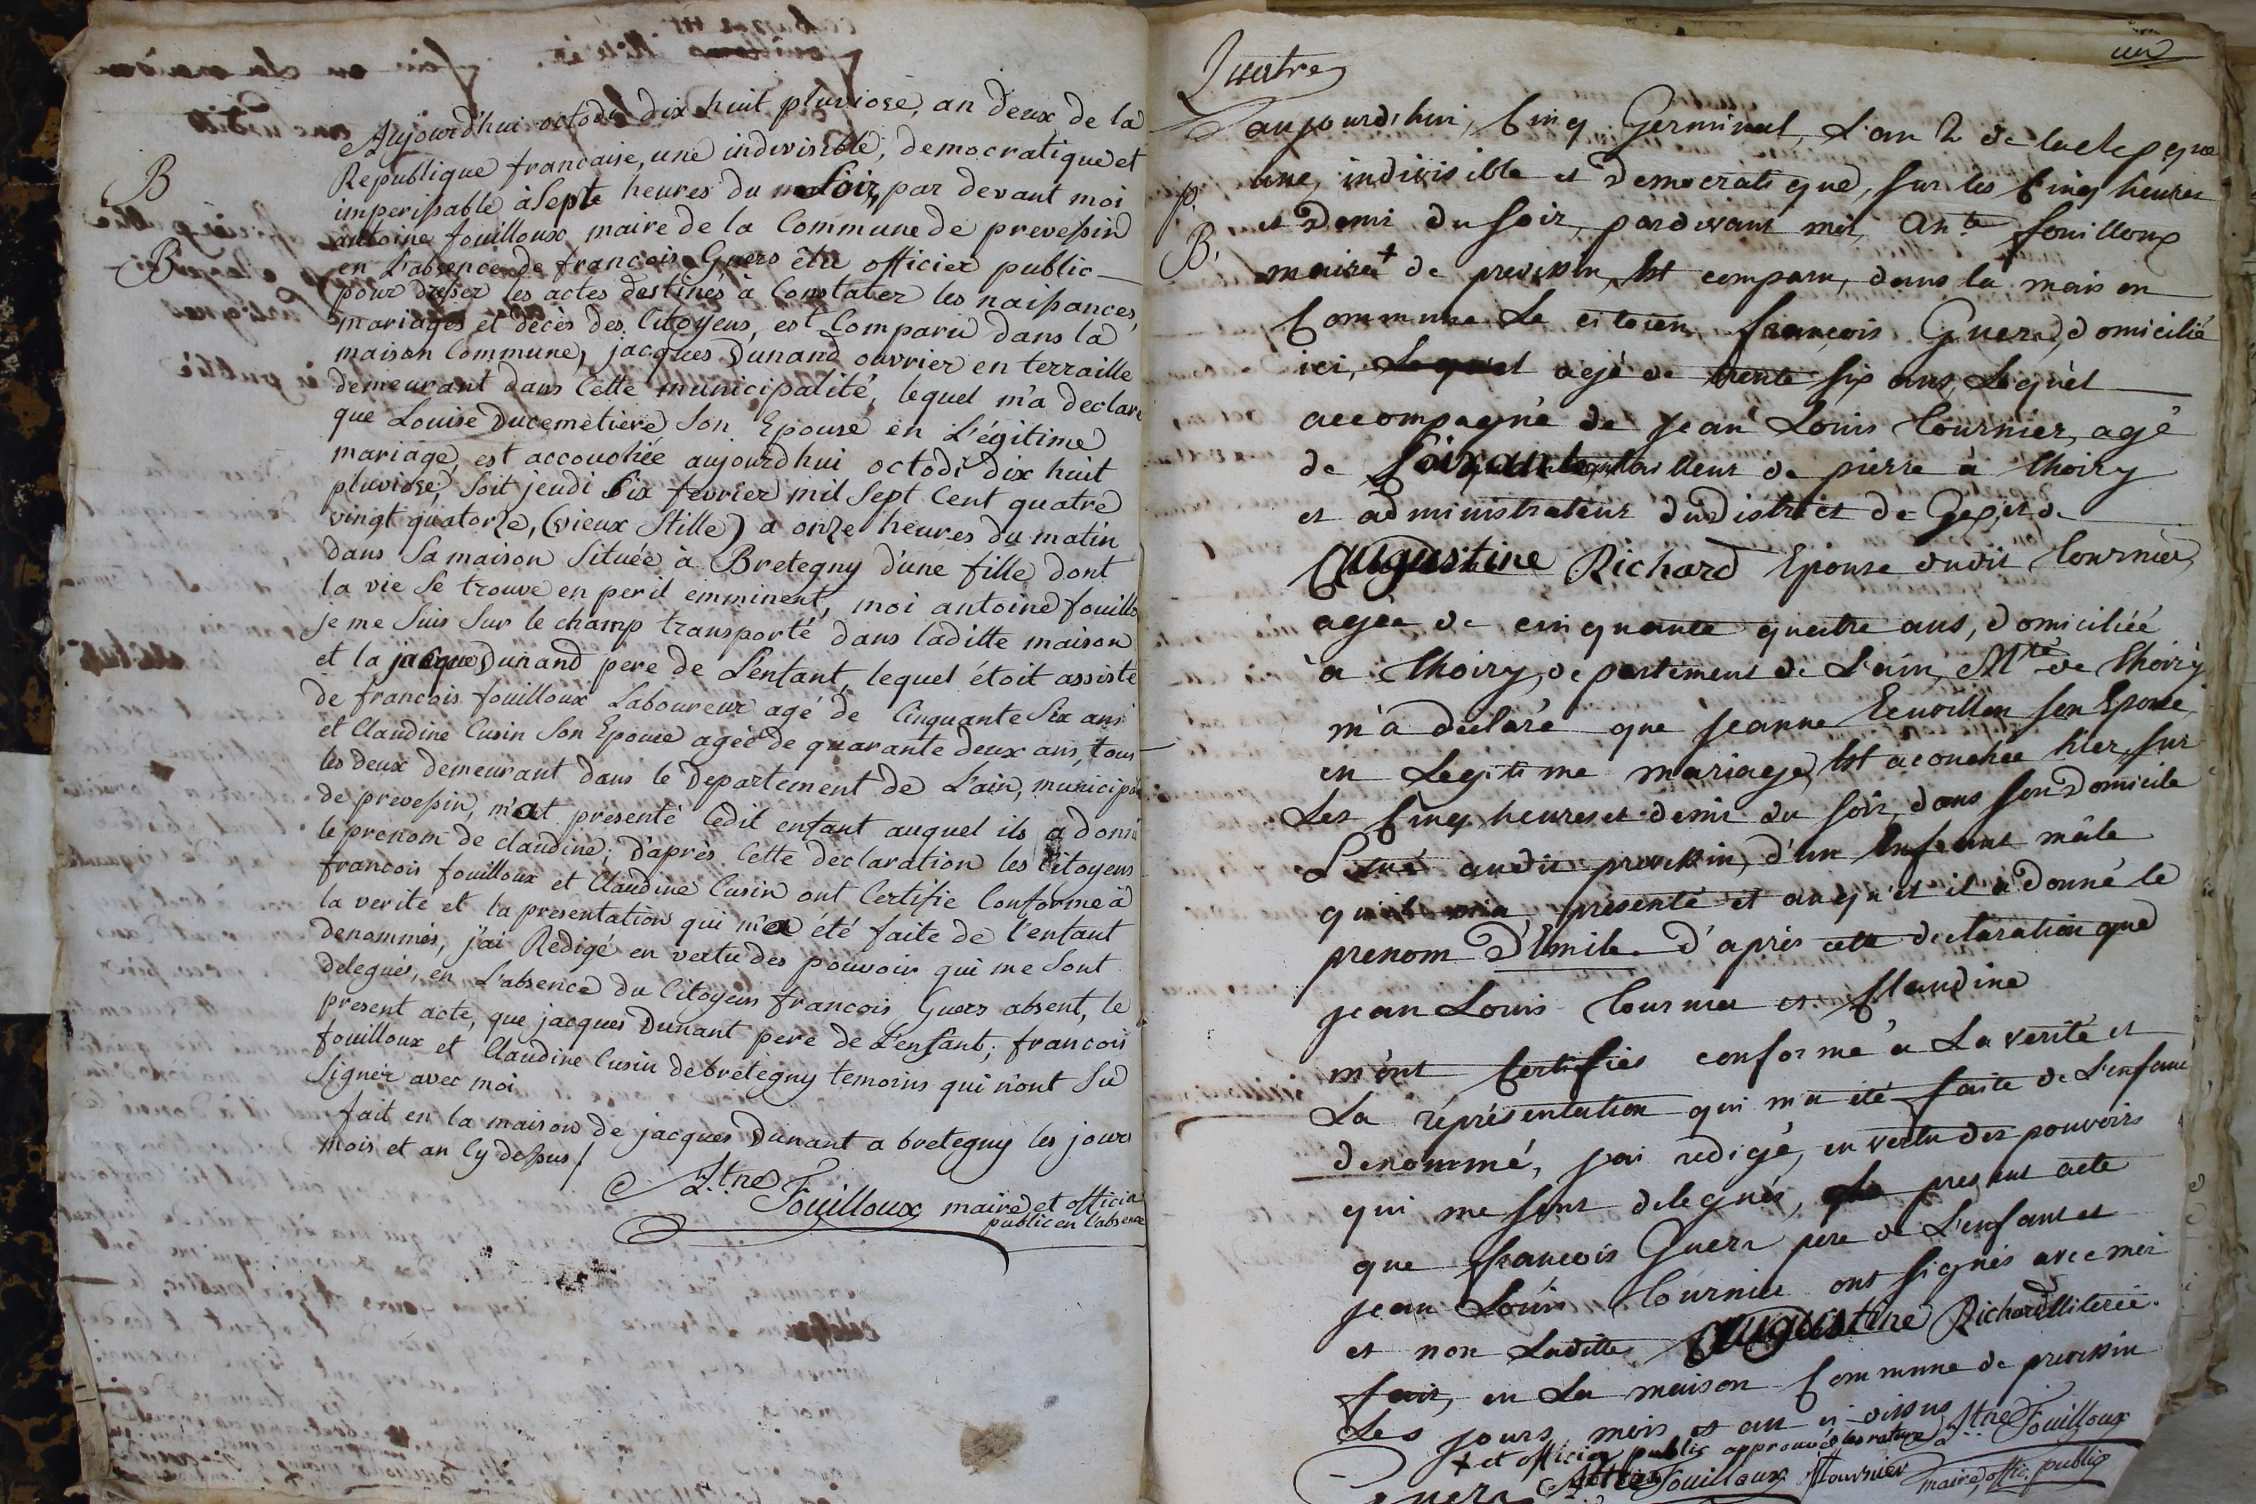 B
B
Aujourd'hui octodi dix huit pluviose, an deux de la
Republique francaise, une indivisible, democratique et
imperissable à Sept heures du Soir, par devant moi
antoine fouilloux maire de la Commune de prevessin
en L'absence de francois Guers élu officier public
pour dresser les actes destinés à Constater les naissances,
mariages et décès des Citoyens, est Comparu dans la
maison Commune, jacques Dunand ouvrier en terraille
demeurant dans Cette municipalité, lequel m'a declaré
que Louise Ducemetiere Son Epouse en L'égitime
mariage, est accouchée aujourdhui octodi dix huit
pluviose, Soit jeudi Six fevrier mil Sept Cent quatre
vingt quatorze, (vieux Stille) a onze heures du matin
dans Sa maison Située à Bretegny d'une fille dont
la vie Se trouve en peril emminent, moi antoine fouillo
je me Suis Sur le champ transporté dans laditte maison
et la jacques Dunand pere de L'enfant, lequel étoit assisté
de francois fouilloux Laboureur agé de Cinquante Six ans
et Claudine Cusin Son Epouse agée de quarante deux ans, tous
les deux demeurant dans le Departement de L'ain, municip
de prevessin, m'at presenté Cedit enfant auquel ils a donné
le prenom de claudine; D'après Cette declaration les Citoyens
francois fouilloux et Claudine Cusin ont Certifie Conforme à
la verité et la presentation qui m'a été faite de l'enfant
denommés, j'ai Redigé en vertu des pouvoir qui me Sont
delegués, en L'absence du Citoyens francois Guers absent, le
present acte, que jacques Dunant pere de L'enfant; francois
fouilloux et Claudine Cusin de bretegny temoins qui n'ont Su
Signer avec moi
fait en la maison de jacques Dunant a bretegny les jours
mois et an Cy dessus /.
Atne Fouilloux maire et officie
public en l'absence
un
Quatre
p.
B.
aujourd'hui, Cinq Germinal, L'an 2 de la
une, indivisible et Democratique, sur les Cinq heures
et Demi du soir, pardevant moi, Ante fouilloux
maire + de prevessin, Est comparu, dans la maison
Commune Le citoien françois Guers, domicilié
ici, Lequel agé de trente six ans, Lequel
accompagné de jean Louis Tournier, agé
de Soixante, tailleur de pierre à Thoiry
et administrateur du District de Gex, et de
augustine Richard Epouse dudit Tournier,
agée de cinquante quatre ans, domiciliée
à Thoiry, departement de L'ain, Mté de Thoiry
m'a déclaré que Jeanne Ecuvillon son Epouse
en Legitime mariage, Est acouchée hier, sur
Les Cinq heures et demi du soir, dans son Domicile
Situé audit prevessin, d'un Enfant mâle
qu'il m'a présenté et auquel il a donné le
prenom D'Emile D'après cette declaration que
jean Louis Tournier et Claudine
m'ont Certifiés conforme à La verité et
La répresentation qui m'a été faite de L'enfant
denommé, j'ai redigé, en vertu des pouvoirs
qui me sont delegués, le present acte
que françois Guers pere de L'enfant et
jean Louis Tournier ont signés avec moi
et non Laditte augustine Richard illiterée.
fait, en La maison Commune de prevessin
Les jours, mois et an ci-dessus Atne Fouilloux
+ et officier public approuvé les rature
Guers Fouilloux Tournier maire offic. public